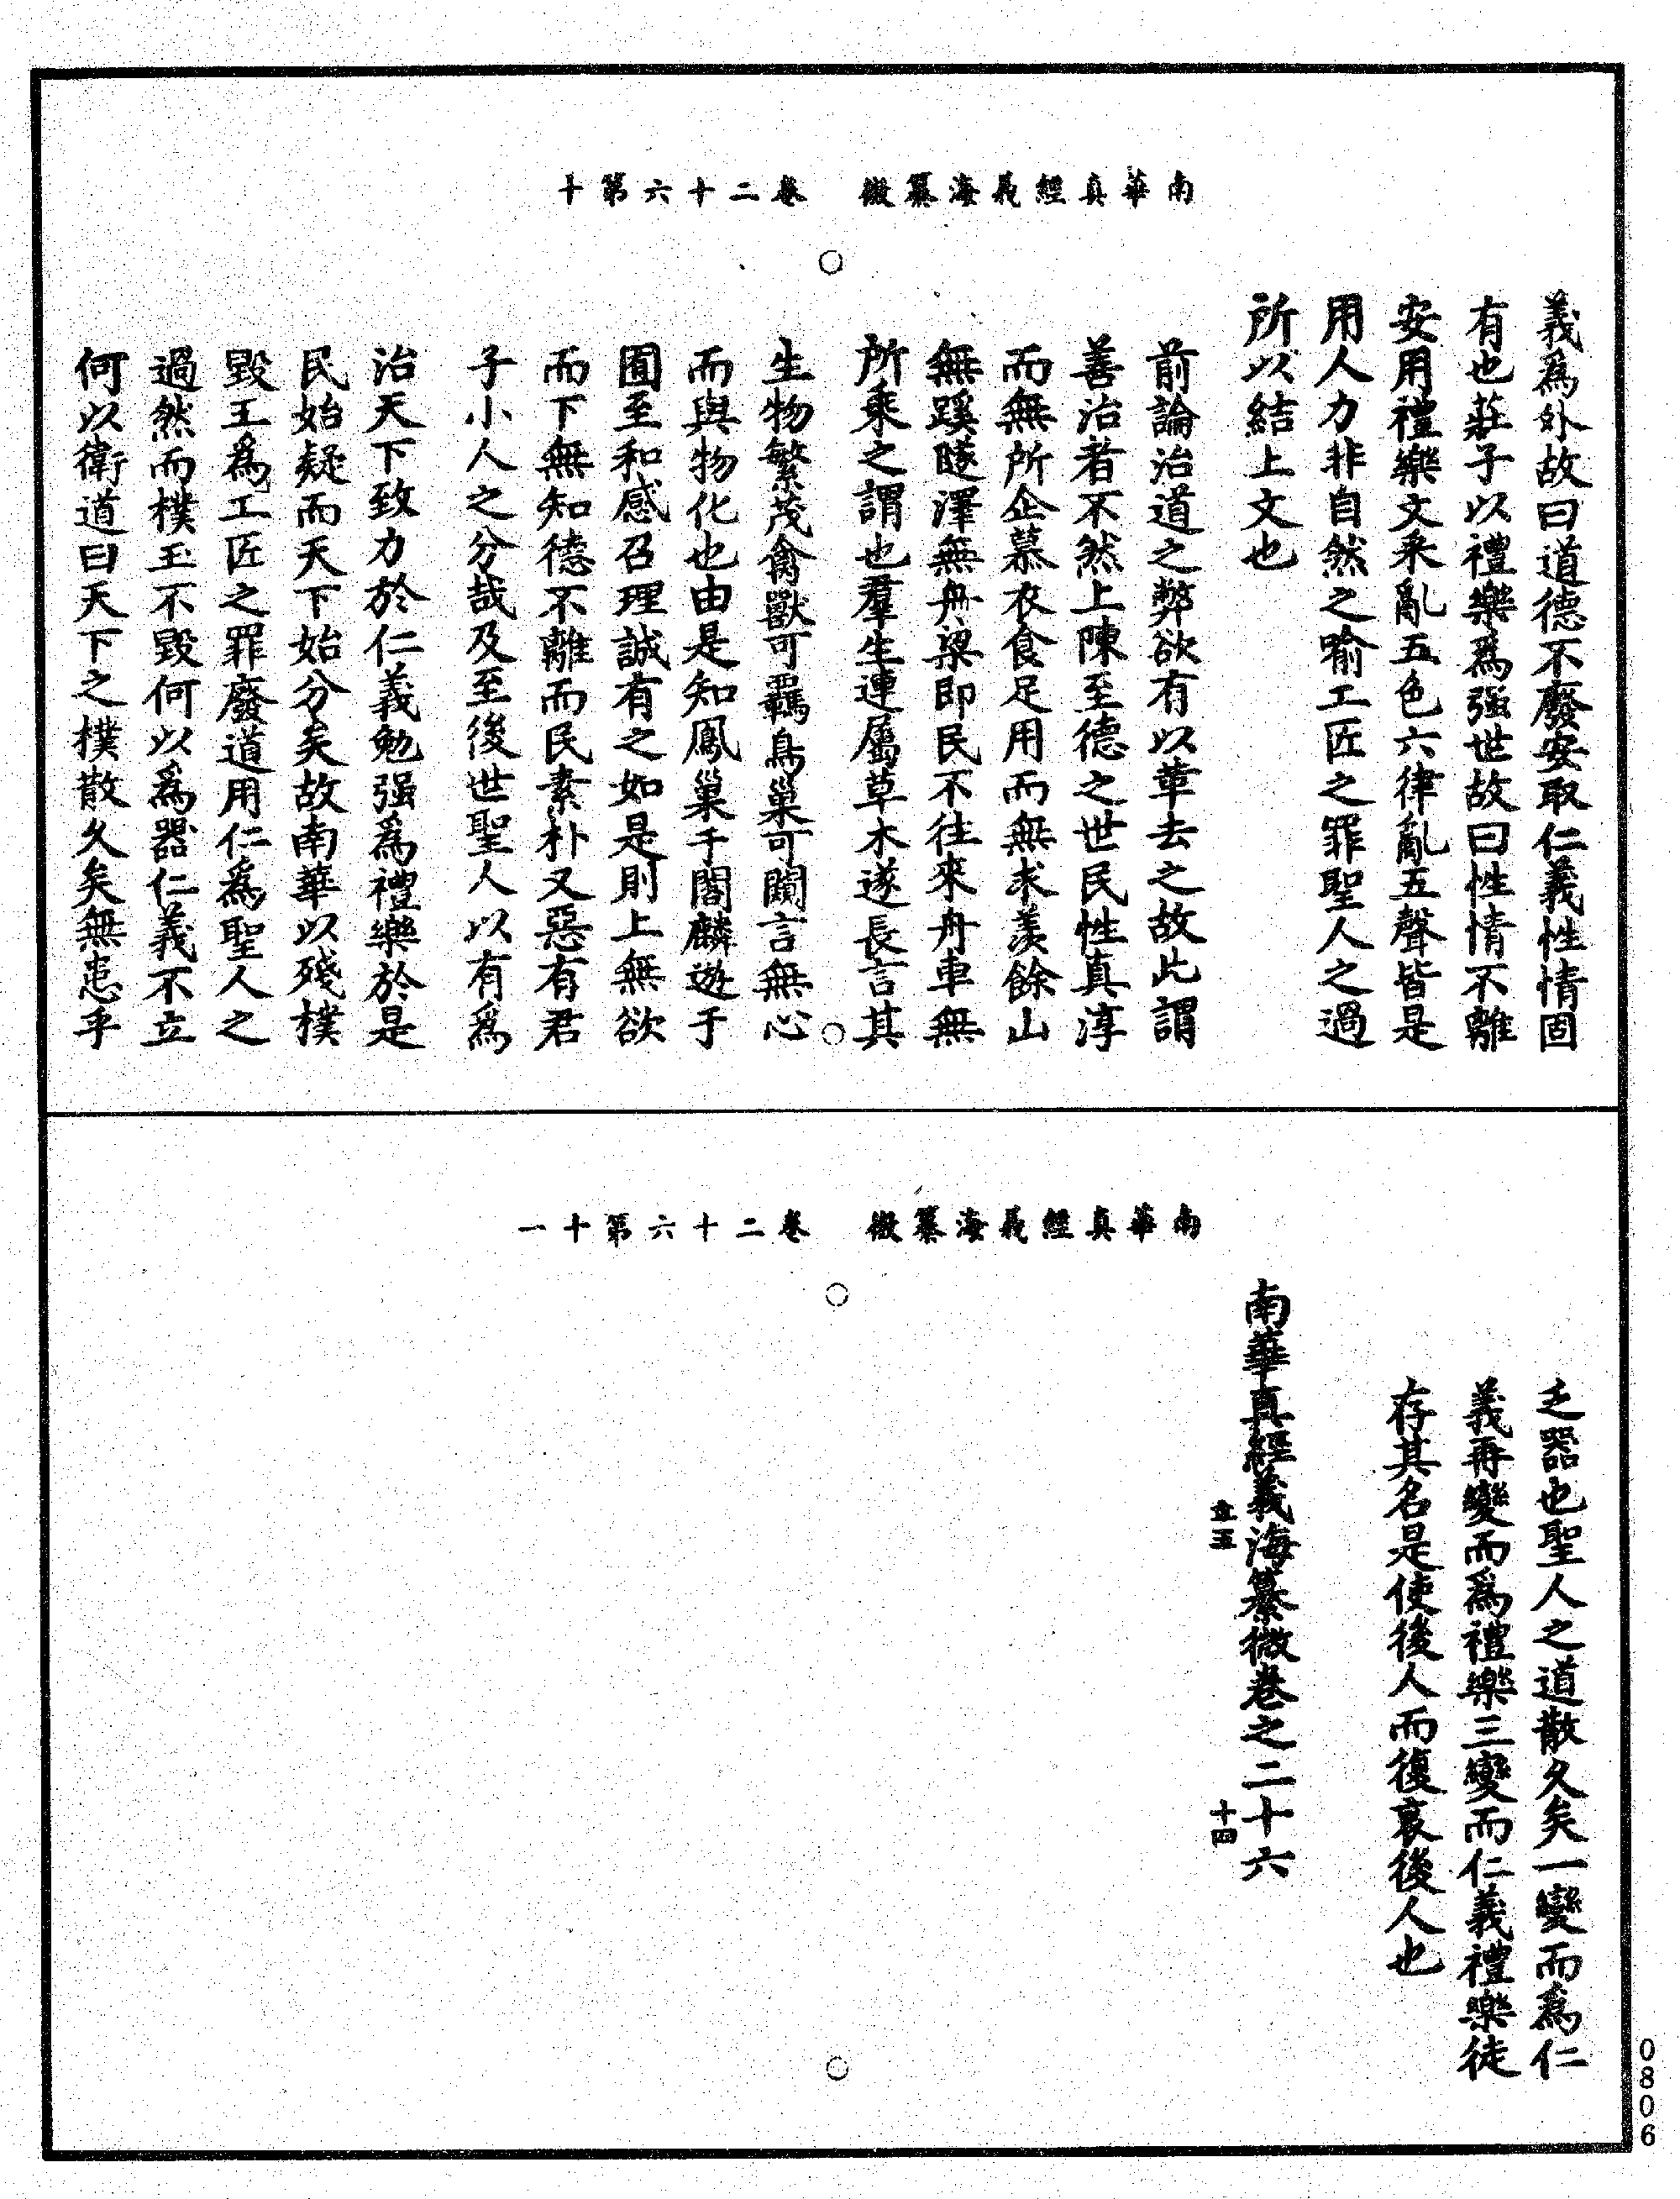 南華真經義海纂微　卷二十六第十
義爲外故曰道德不廢安取仁義性情固
有也莊子以禮樂爲强世故曰性情不離
安用禮樂文采亂五色六律亂五聲皆是
用人力非自然之喻工匠之罪聖人之過
所以結上文也
前論治道之弊欲有以革去之故此謂
善治者不然上陳至德之世民性真淳
而無所企慕衣食足用而無求羨餘山
無蹊隧澤無舟梁即民不往來舟車無
所乘之謂也羣生連屬草木遂長言其
生物繁茂禽獸可羈鳥巢可闚言無心
而與物化也由是知鳳巢于閣麟遊于
囿至和感召理誠有之如是則上無欲
而下無知德不離而民素朴又惡有君
子小人之分哉及至後世聖人以有爲
治天下致力於仁義勉强爲禮樂於是
民始疑而天下始分矣故南華以殘樸
毀玉爲工匠之罪廢道用仁爲聖人之
過然而樸玉不毀何以爲器仁義不立
何以衛道曰天下之樸散久矣無患乎
南華真經義海纂微　卷二十六第十一
乏器也聖人之道散久矣一變而爲仁
義再變而爲禮樂三變而仁義禮樂徒
存其名是使後人而復哀後人也
南華真經義海纂微卷之二十六
十四
0806